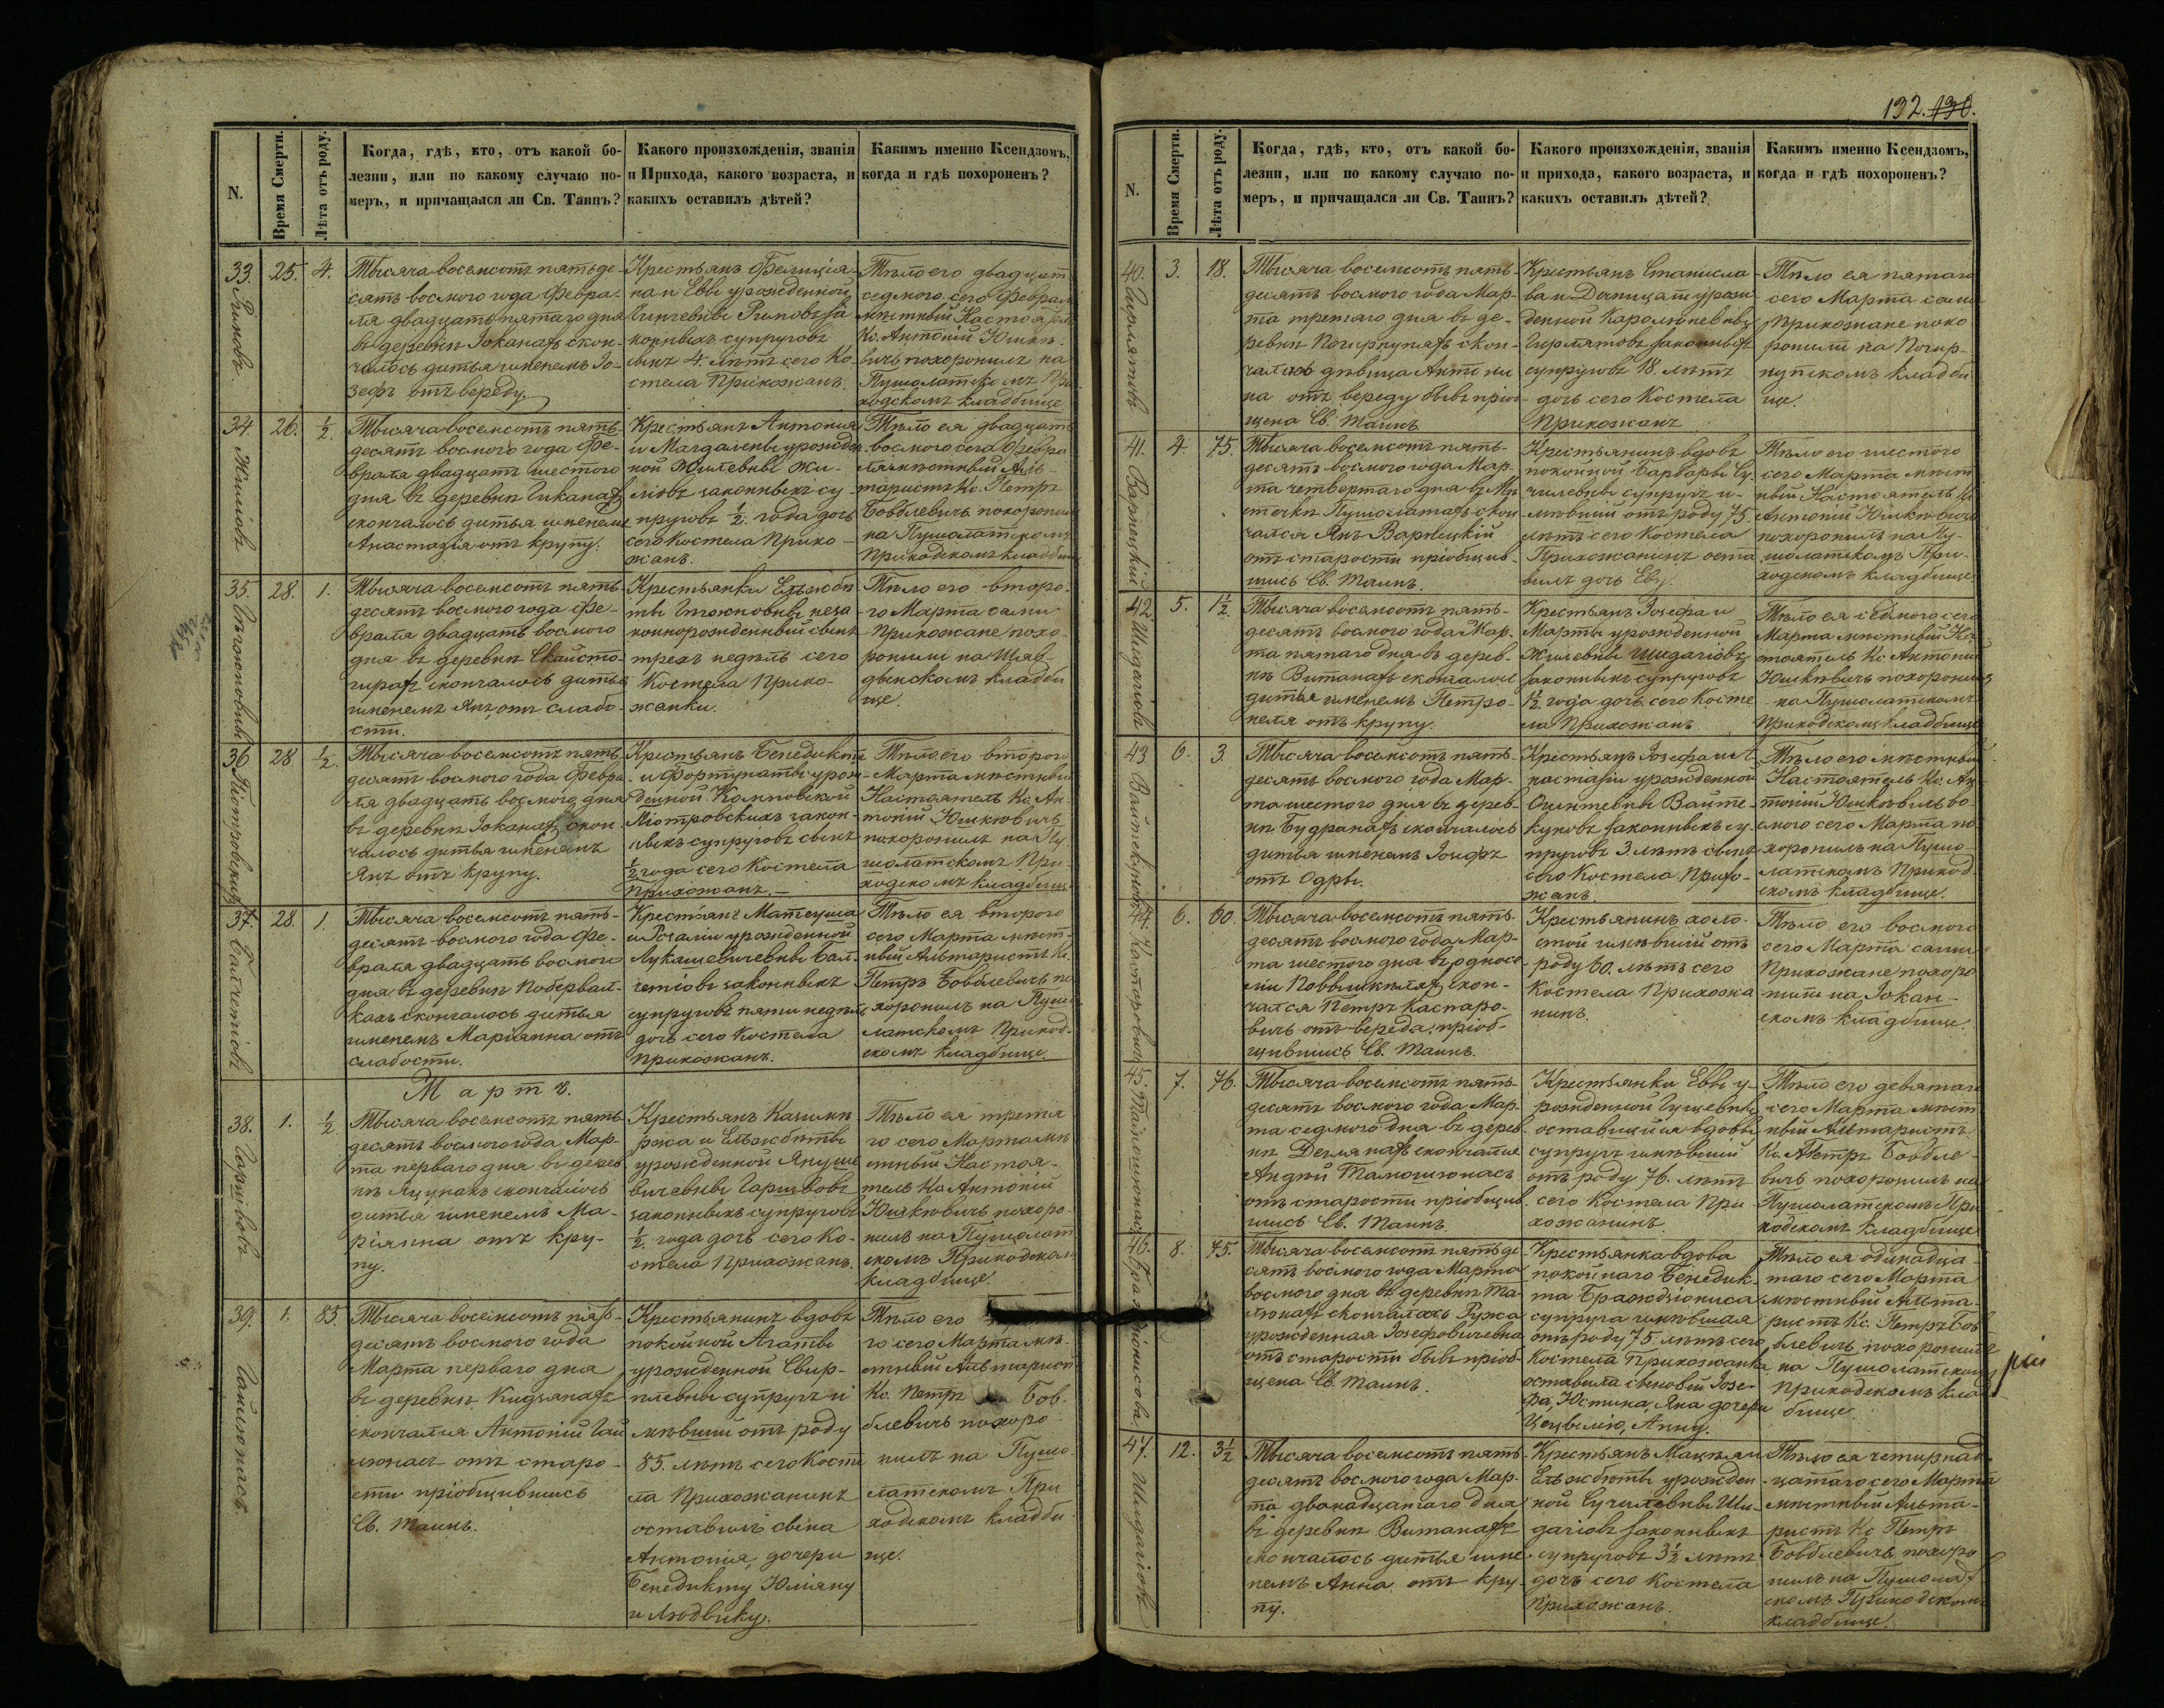 132. 130.
N.
Время Смерти.
Лѣта отъ роду.
Когда, гдѣ, кто, отъ какой бо-
лезни, или по какому случаю по-
меръ, и причащался ли Св. Таинъ?
Какого произхожденія, званія
и Прихода, какого возраста, и
какихъ оставилъ дѣтей?
Какимъ именно Ксендзомъ,
когда и гдѣ похороненъ?
33.
25.
4.
Тысяча восемсотъ пятьде-
сятъ восмого года Февра-
ля двадцать пятаго дня
въ деревни Іоканахъ скон-
чалось дитья именемъ Іо-
зефъ отъ вереду.
Крестьянъ Фелиція-
на и Евы урожденной
супруговъ
сынъ 4. лѣтъ сего Ко-
стела Прихожанъ.
Тѣло его двадцат
седмого сего Феврал
мѣстный Настоятел
Кс. Антоній Юшкѣ-
вичь похоронилъ на
Пушолатскомъ При
ходскомъ кладбище
34.
26.
½.
Тысяча восемсотъ пять-
десятъ восмого года Фе-
враля двадцать шестого
дня въ деревни
скончалось дитья именемъ
Анастазія отъ крупу.
Крестьянъ Антонія
и Магдалены урожден
ной Жилевны Жи-
ліовъ законныхъ су-
пруговъ ½. года дочь
сего Костела Прихо-
жанъ.
Тѣло ея двадцать
восмого сего Февра
ля мѣстный Аль-
таристъ Кс. Петръ
Бовблевичь похоронилъ
на Пушолатскомъ
Приходскомъ кладбищ
35.
28.
1.
Тысяча восемсотъ пять
десятъ восмого года Фе-
враля двадцать восмого
дня въ деревни Скаисто-
гирахъ скончалось дитья
именемъ Янъ отъ слабо-
сти.
Крестьянки Ельжбѣ
ты неза
коннорожденный сынъ
трехъ недѣль сего
Костела Прихо-
жанки.
Тѣло его второ-
го Марта сами
Прихожане похо-
ронили на
кладби
ще.
36
28
½.
Тысяча восемсотъ пять
десятъ восмого года Февра
ля двадцать восмого дня
въ деревни Іоканахъ скон-
чалось дитья именемъ
Янъ отъ крупу.
Крестьянъ Бенедикта
и Фортунаты урож-
денной
Піотровскихъ закон-
ныхъ супруговъ сынъ
½. года сего Костела
Прихожанъ.
Тѣло его второго
Марта мѣстный
Настоятель Кс. Ан-
тоній Юшкѣвичь
похоронилъ на Пу
шолатскомъ При-
ходскомъ кладбищ
37.
28.
1.
Тысяча восемсотъ пять-
десятъ восмого года Фе-
враля двадцать восмого
дня въ деревни Побервал-
кахъ скончалось дитья
именемъ Маріянна отъ
слабости.
Крестьянъ Матеуша
и Розаліи урожденной
Лукашевичевны
законныхъ
супруговъ пяти недѣль
дочь сего Костела
прихожанъ.
Тѣло ея второго
сего Марта мѣст-
ный Альтаристъ Кс.
Петръ Бовблевичь по
хоронилъ на Пушо
латскомъ Приход-
скомъ кладбище.
Мартъ.
38.
1.
½
Тысяча восемсотъ пять
десятъ восмого года Мар-
та перваго дня въ дерев
нѣ скончалось
дитья именемъ Ма-
ріянна отъ кру-
пу.
Крестьянъ Казимѣ
ржа и Ельжбѣты
урожденной Януше
вичевны
законныхъ супруговъ
½. года дочь сего Ко-
стела Прихожанъ.
Тѣло ея третья
го сего Марта мѣ
стный Настоя-
тель Кс. Антоній
Юшкѣвичь похоро-
нилъ на Пушолат
скомъ Приходском
кладбище.
39.
1.
85.
Тысяча восемсотъ пять-
десятъ восмого года
Марта перваго дня
въ деревни
скончался Антоній Гай
люнасъ отъ старо-
сти пріобщившись
Св. Таинъ.
Крестьянинъ вдовъ
покойной Агаты
урожденной
супругъ и
мѣвшій отъ роду
85. лѣтъ сего Косте
ла Прихожанинъ
оставилъ сына
Антонія, дочери
Бенедикту Юліяну
и Людвику.
Тѣло его
го сего Марта мѣ-
стный Альтарист
Кс. Петръ Бов-
блевичь похоро
нилъ на Пушо-
латскомъ При
ходскомъ кладби
ще.
N.
Время Смерти.
Лѣта отъ роду.
Когда, гдѣ, кто, отъ какой бо-
лезни, или по какому случаю по-
меръ, и причащался ли Св. Таинъ?
Какого произхожденія, званія
и прихода, какого возраста, и
какихъ оставилъ дѣтей?
Какимъ именно Ксендзомъ,
когда и гдѣ похороненъ?
40.
3.
18.
Тысяча восемсотъ пять-
десятъ восмого года Мар-
та третяго дня въ де-
ревни скон-
чалась дѣвица Антони
на отъ вереду бывъ пріоб-
щена Св. Таинъ
Крестьянъ Станисла
ва и урож-
денной
законныхъ
супруговъ 18. лѣтъ
дочь сего Костела
Прихожанъ
Тѣло ея пятаго
сего Марта сами
Прихожане похо
ронили на Погир-
кладби
ще.
41.
4.
75.
Тысяча восемсотъ пять-
десятъ восмого года Мар-
та четвертаго дня въ Мѣ
стечкѣ Пушолатахъ скон
чался Янъ Варнецкій
отъ старости пріобщив-
шись Св. Таинъ.
Крестьянинъ вдовъ
покойной Барбары Су
чилевны супругъ и-
мѣвшій отъ роду 75.
лѣтъ сего Костела
Прихожанинъ оста
вилъ дочь Еву.
Тѣло его шестого
сего Марта мѣст
ный Настоятель Кс.
Антоній Юшкѣвичь
похоронилъ на Пу-
шолатскомъ При-
ходскомъ кладбище
42.
5.
1½
Тысяча восемсотъ пять-
десятъ восмого года Мар-
та пятаго дня въ дерев-
нѣ Витанахъ скончалось
дитья именемъ Петро-
неля отъ крупу.
Крестьянъ Іозефа и
Марты урожденной
Жилевны Шидагіовъ
законныхъ супруговъ
1½. года дочь сего Косте
ла Прихожанъ.
Тѣло ея седмого сего
Марта мѣстный На
стоятель Кс. Антоній
Юшкѣвичь похоронилъ
на Пушолатскомъ
Приходскомъ кладбище
43
6.
3
Тысяча восемсотъ пять
десятъ восмого года Мар-
та шестого дня въ дерев-
нѣ Будранахъ скончалось
дитья именемъ Іозефъ
отъ одры.
Крестьянъ Іозефа и А
настазіи урожденной
законныхъ су-
пруговъ 3. лѣтъ сынъ
сего Костела Прихо-
жанъ.
Тѣло его мѣстный
Настоятель Кс. Ан
тоній Юшкѣвичь во-
смого сего Марта по-
хоронилъ на Пушо-
латскомъ Приход-
скомъ кладбище.
44.
6.
60.
Тысяча восемсотъ пять
десятъ восмого года Мар-
та шестого дня въ односе
ліи скон-
чался Петръ Каспаро-
вичь отъ вереда, пріоб-
щившись Св. Таинъ.
Крестьянинъ холо-
стой имѣвшій отъ
роду 60. лѣтъ сего
Костела Прихожа
нинъ.
Тѣло его восмого
сего Марта сами
Прихожане похоро
нили на Іокан-
скомъ кладбище.
45.
7.
76.
Тысяча восемсотъ пять
десятъ восмого года Мар-
та седмого дня въ дерев
нѣ скончался
Андрей
отъ старости пріобщив
шись Св. Таинъ
Крестьянки Евы у-
рожденной
оставшійся вдовы
супругъ имѣвшій
отъ роду 76. лѣтъ
сего Костела При
хожанинъ.
Тѣло его девятаго
сего Марта мѣст
ный Альтаристъ
Кс. Петръ Бовбле-
вичь похоронилъ на
Пушолатскомъ При
ходскомъ кладбище
46.
8.
75.
Тысяча восемсотъ пятьде-
сятъ восмого года Марта
восмого дня въ деревни
скончалась Ружа
урожденная Іозефовичевна
отъ старости бывъ пріоб-
щена Св. Таинъ.
Крестьянка вдова
покойнаго Бенедик-
та Бражджіониса
супруга имѣвшая
отъ роду 75 лѣтъ сего
Костела Прихожанка
оставила сыновей Іозе-
фа, Юстина, Яна дочери
Цецылію, Анну.
Тѣло ея одинадца-
таго сего Марта
мѣстный Альта-
ристъ Кс. Петръ Бов
блевичь похоронилъ
на Пушолатском
Приходскомъ клад
бище.
47.
12.
3½
Тысяча восемсотъ пять
десятъ восмого года Мар-
та дванадцатаго дня
въ деревни Витанахъ
скончалось дитья име-
немъ Анна отъ кру-
пу.
Крестьянъ Мацѣя и
Ельжбѣты урожден-
ной Сучилевны Ши-
дагіовъ законныхъ
супруговъ 3½ лѣтъ
дочь сего Костела
Прихожанъ.
Тѣло ея четырнад-
цатаго сего Марта
мѣстный Альта-
ристъ Кс. Петръ
Бовблевичь похоро
нилъ на Пушолат
скомъ Приходском
кладбище.